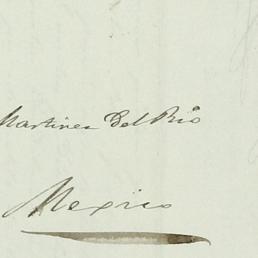 Martinez Del Rio
Mexico